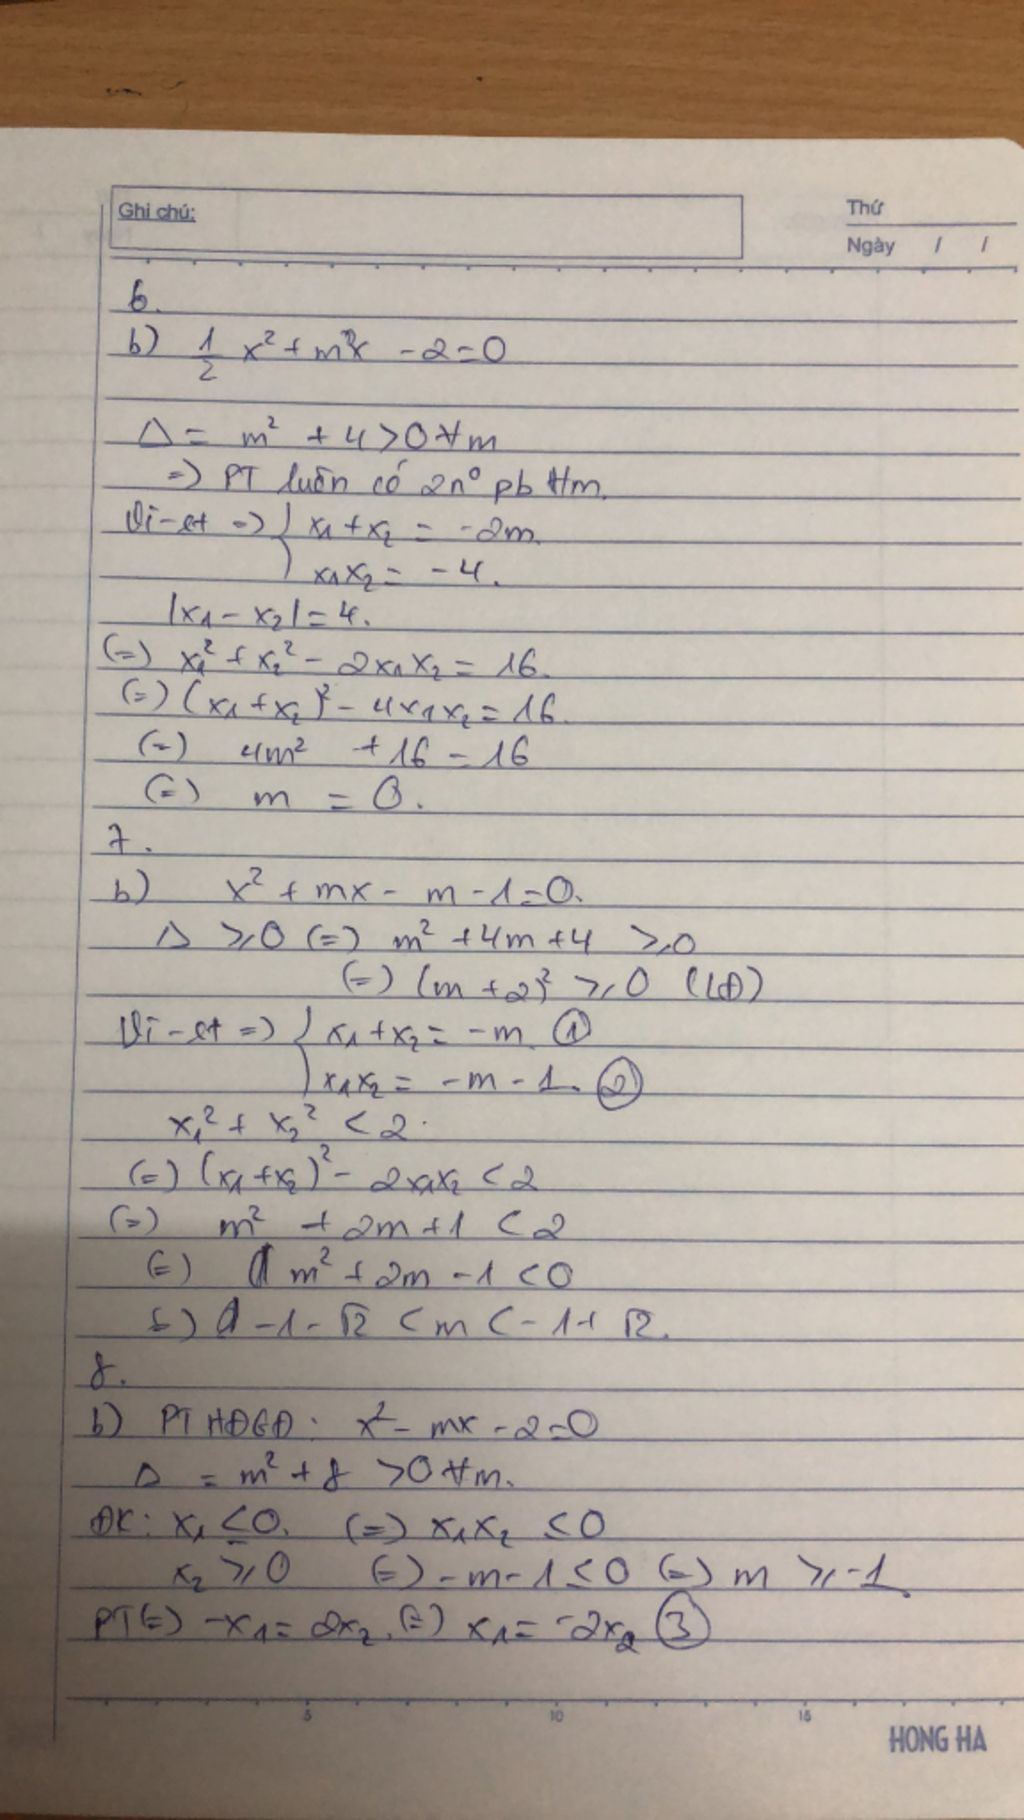 Ghi chú:
Thứ
Ngày / /
6.
b) 1/2 x² + mx - 2 = 0
Δ = m² + 4 > 0 ∀m
=> PT luôn có 2 n⁰ pb ∀m.
Vi-et => { x₁ + x₂ = -2m.
x₁x₂ = -4.
|x₁ - x₂| = 4.
(=) x₁² + x₂² - 2x₁x₂ = 16.
(=) (x₁ + x₂)² - 4x₁x₂ = 16
(=) 4m² + 16 = 16
(=) m = 0.
7.
b) x² + mx - m - 1 = 0.
Δ ≥ 0 (=) m² + 4m + 4 ≥ 0
(=) (m + 2)² ≥ 0 (LĐ)
Vi-et => { x₁ + x₂ = -m ①
x₁x₂ = -m - 1. ②
x₁² + x₂² < 2.
(=) (x₁ + x₂)² - 2x₁x₂ < 2
(=) m² + 2m + 1 < 2
(=) m² + 2m - 1 < 0
(=) -1 - √2 < m < -1 + √2.
8.
b) PT HĐGĐ: x² - mx - 2 = 0
Δ = m² + 8 > 0 ∀m.
ĐK: x₁ ≤ 0. (=) x₁x₂ ≤ 0
x₂ ≥ 0 (=) -m - 1 ≤ 0 (=) m ≥ -1
PT (=) -x₁ = 2x₂. (=) x₁ = -2x₂ ③
5 10 15
HONG HA